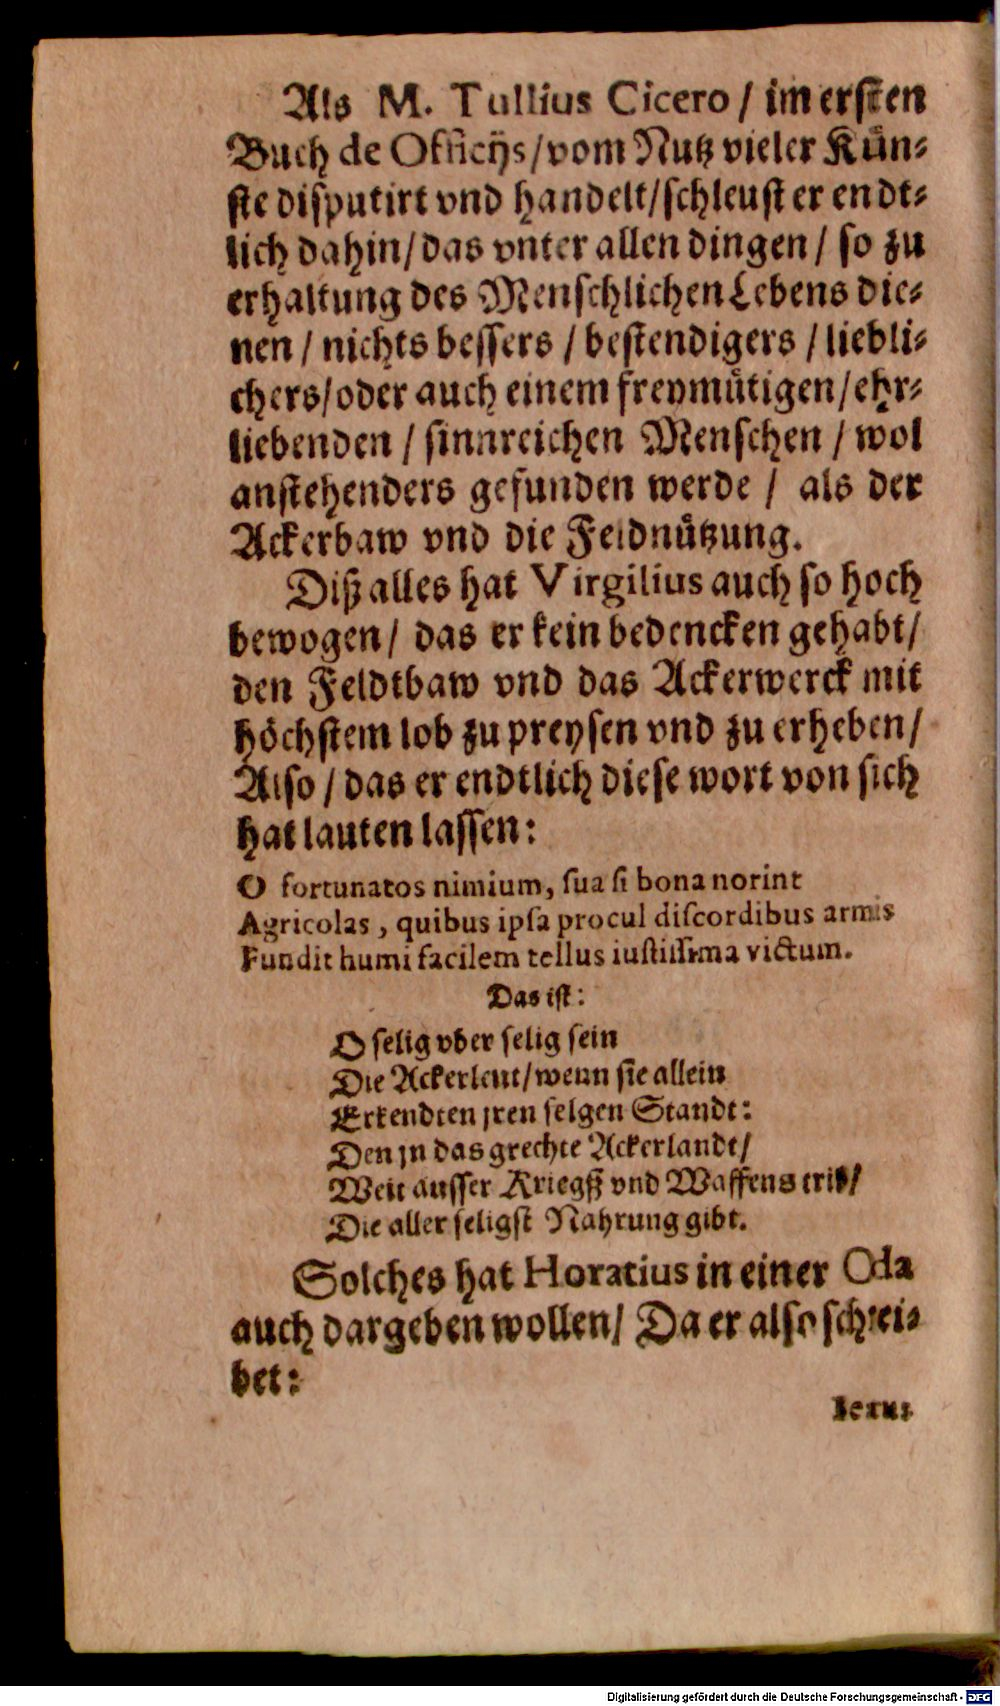 Als M. Tullius Cicero / im ersten
Buch de Officijs / vom Nutz vieler Kün⸗
ste disputirt vnd handelt / schleust er endt⸗
lich dahin / das vnter allen dingen / so zu
erhaltung des Menschlichen Lebens die⸗
nen / nichts bessers / bestendigers / liebli⸗
chers / oder auch einem freymütigen / ehr⸗
liebenden / sinnreichen Menschen / wol
anstehenders gefunden werde / als der
Ackerbaw vnd die Feldnützung.
Diß alles hat Virgilius auch so hoch
bewogen / das er kein bedencken gehabt /
den Feldtbaw vnd das Ackerwerck mit
höchstem lob zu preysen vnd zu erheben /
Also / das er endtlich diese wort von sich
hat lauten lassen:
O fortunatos nimium, sua si bona norint
Agricolas, quibus ipsa procul discordibus armis
Fundit humi facilem tellus iustissima victum.
Das ist:
O selig vber selig sein
Die Ackerleut / wenn sie allein
Erkendten jren selgen Standt:
Den jn das grechte Ackerlandt /
Weit ausser Kriegß vnd Waffens trib /
Die aller seligst Nahrung gibt.
Solches hat Horatius in einer Oda
auch dargeben wollen / Da er also schrei⸗
bet:
Digitalisierung gefördert durch die Deutsche Forschungsgemeinschaft - DFG